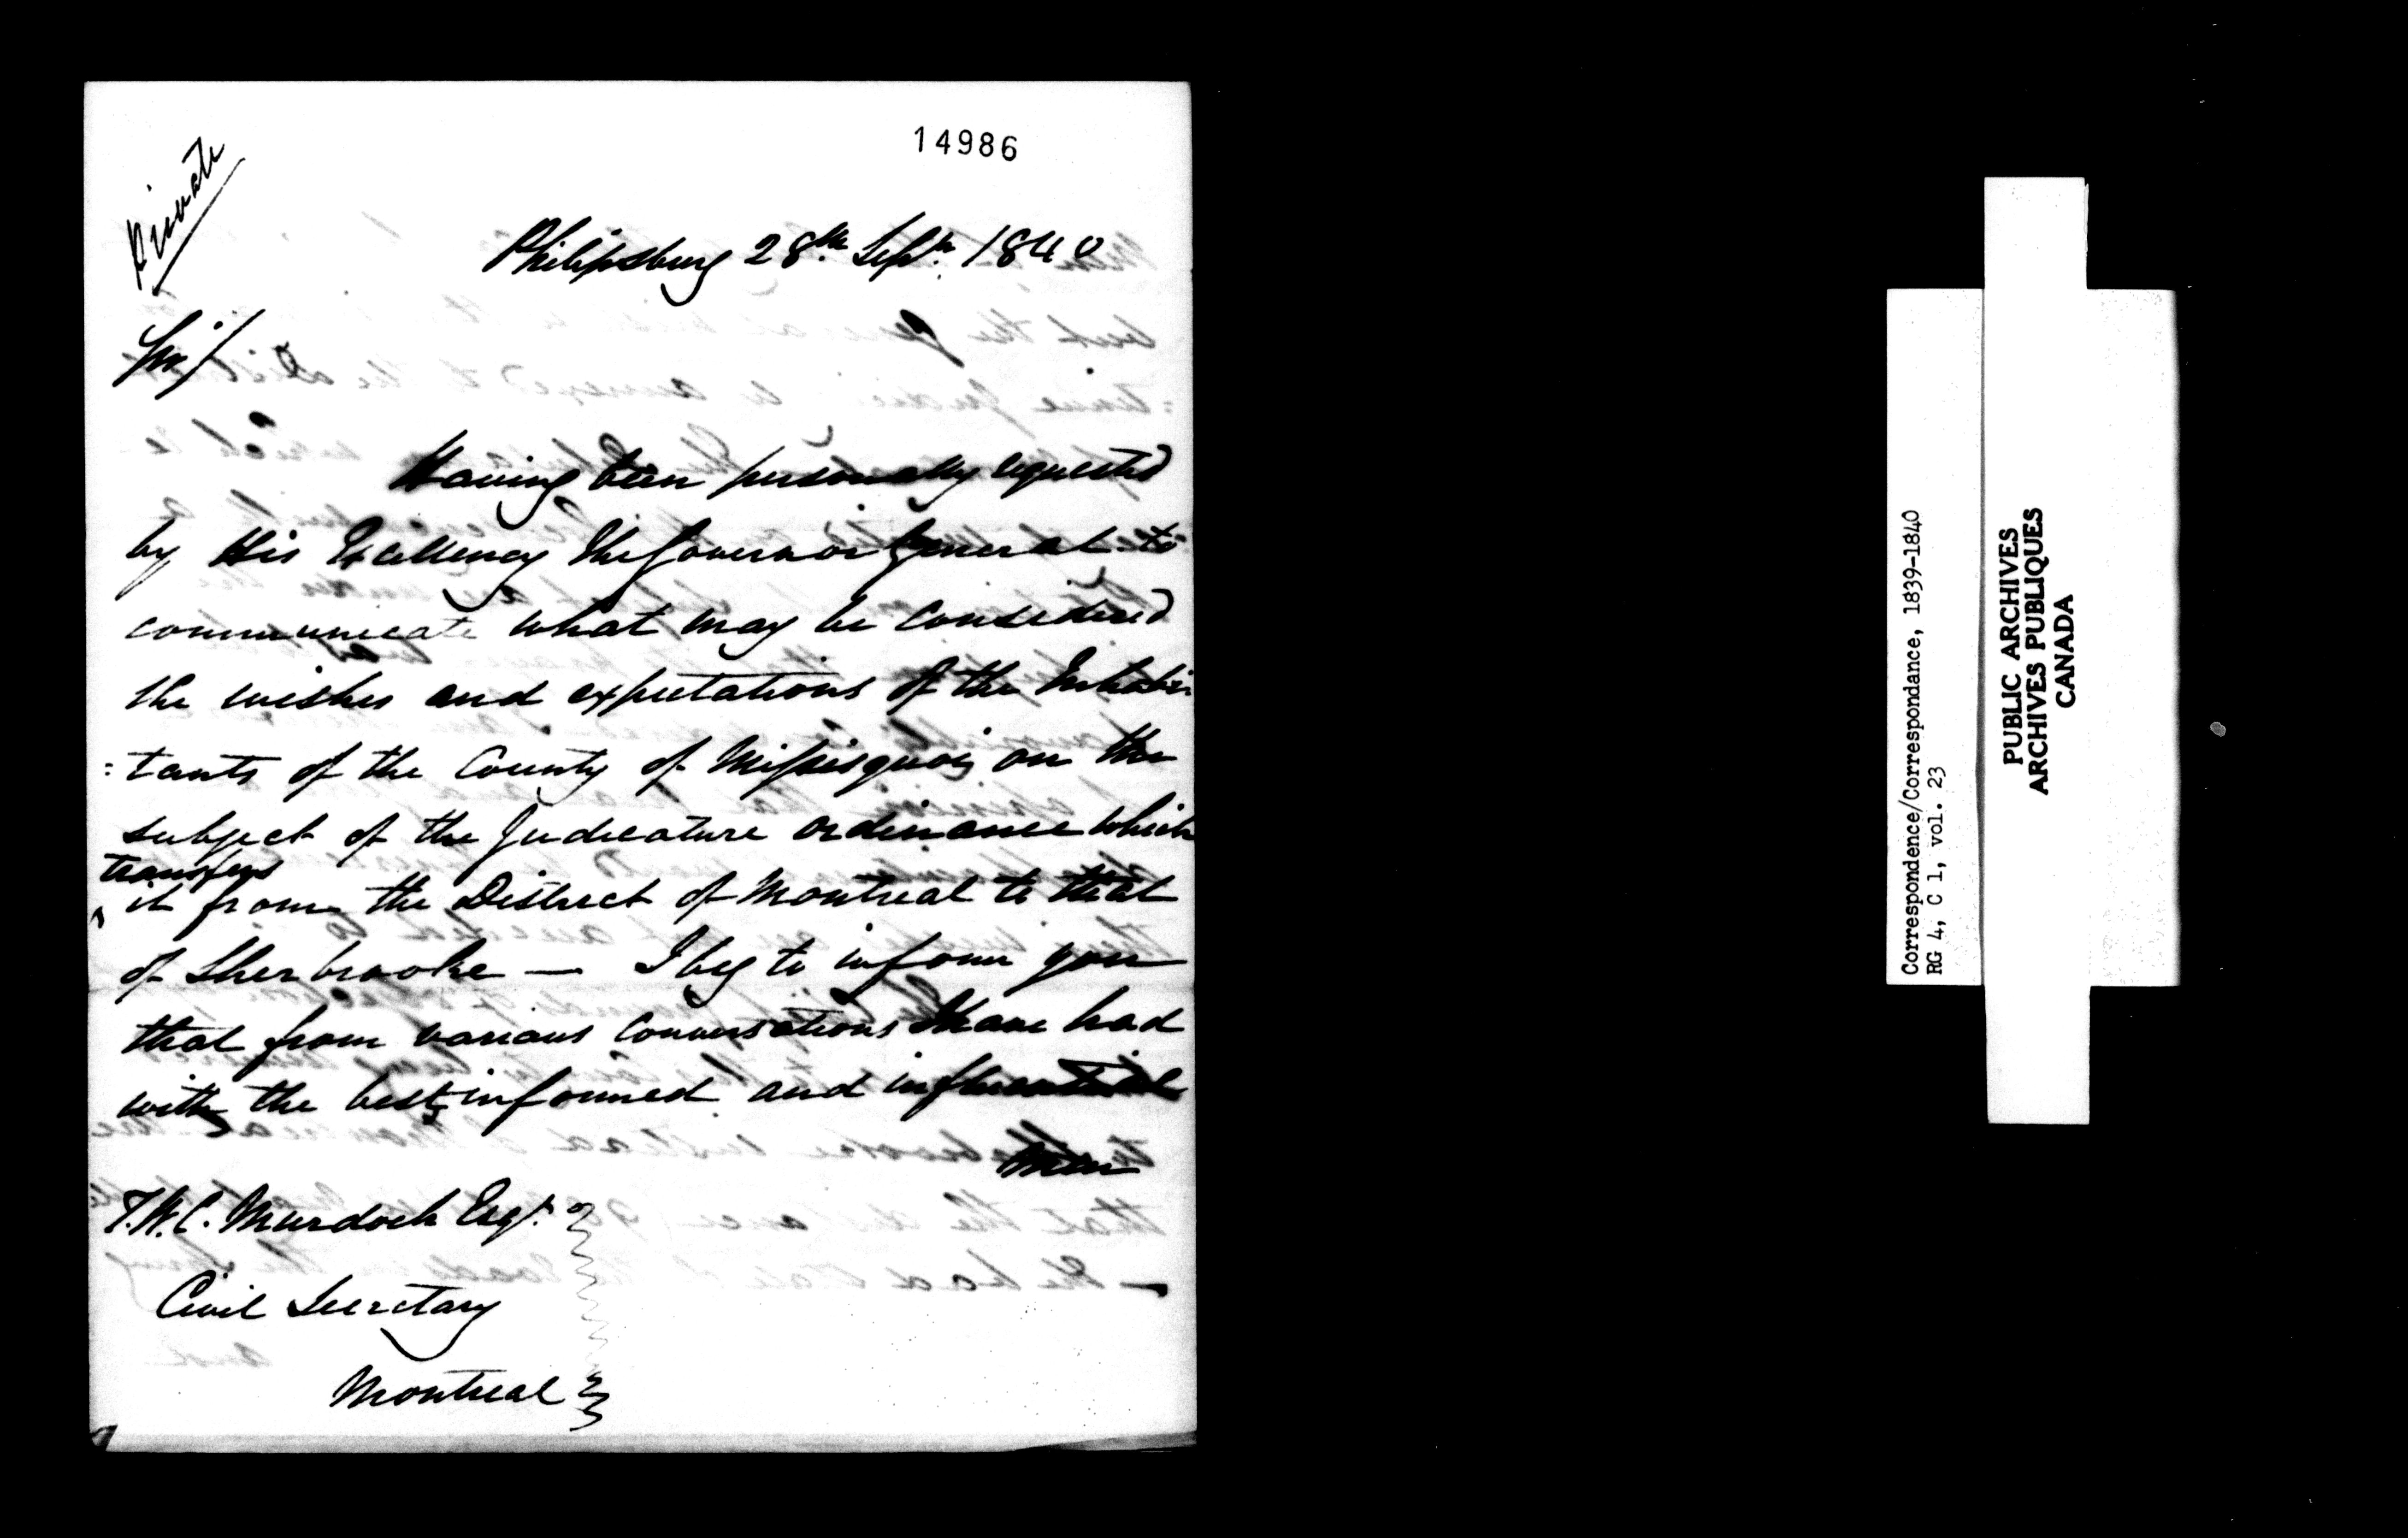 14986
Private
Philipsburg 28th Septr. 1840
Sir/
Having been personally requested
by His Excellency The Governor General to
communicate what may be considered
the wishes and expectations of the Inhabi-
=tants of the County of Missisquoi on the
subject of the Judicature ordinance which
transfers
it from the District of Montreal to that
of Sherbrooke — I beg to inform you
that from various conversations I have had
with the best informed and influential
men
T.W.C. Murdoch Esqr.
Civil Secretary
Montreal
Correspondence/Correspondance, 1839-1840
RG 4, C 1, vol. 23
PUBLIC ARCHIVES
ARCHIVES PUBLIQUES
CANADA